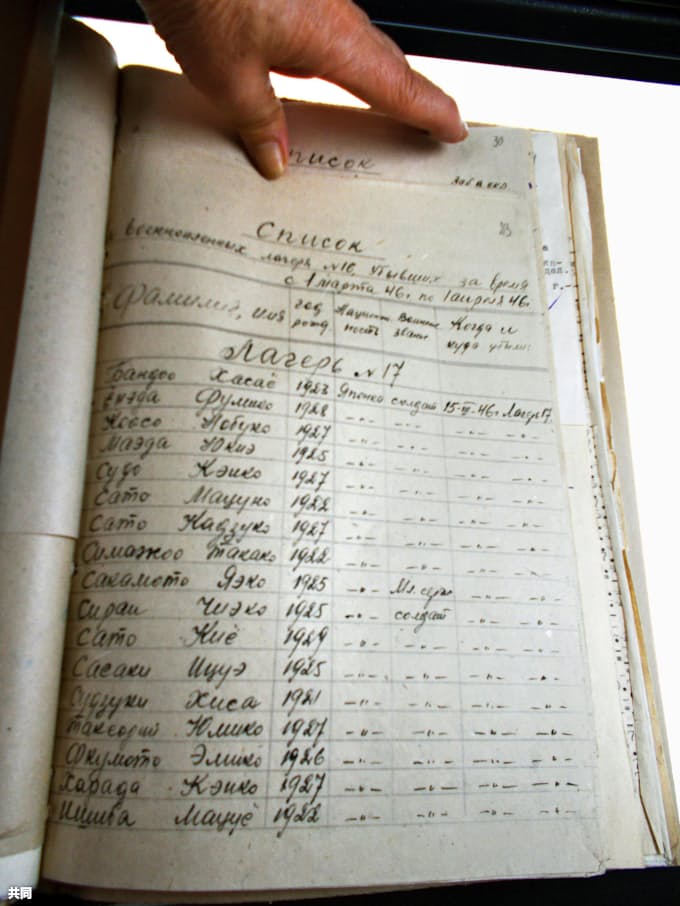 30
писок
Список
военнопленных лагеря №16 убывших за время
с 1 марта 46г по 1 апреля 46г.
Фамилия, имя год рожд Национальность Воинское звание Когда и куда убыли
Лагерь №17
Бандоо Хасаё 1923 Японка солдат 15-III-46г Лагерь 17.
Фумико 1928 -"- -"- -"- -"-
Нобуко 1927 -"- -"- -"- -"-
Маэда Юкиэ 1925 -"- -"- -"- -"-
Судо Кэико 1927 -"- -"- -"- -"-
Сато Мацуно 1922 -"- -"- -"- -"-
Сато Кадзуко 1927 -"- -"- -"- -"-
Симажоо Такако 1922 -"- -"- -"- -"-
Сакамото Яэко 1925 -"- Мл. серж -"- -"-
Сираи Чиэко 1925 -"- солдат -"- -"-
Сато Киё 1929 -"- -"- -"- -"-
Сасаки Ицуэ 1925 -"- -"- -"- -"-
Судзуки Хиса 1921 -"- -"- -"- -"-
Юмико 1927 -"- -"- -"- -"-
Окумото Эмико 1926 -"- -"- -"- -"-
Харада Кэико 1927 -"- -"- -"- -"-
Мацуё 1922 -"- -"- -"- -"-
共同